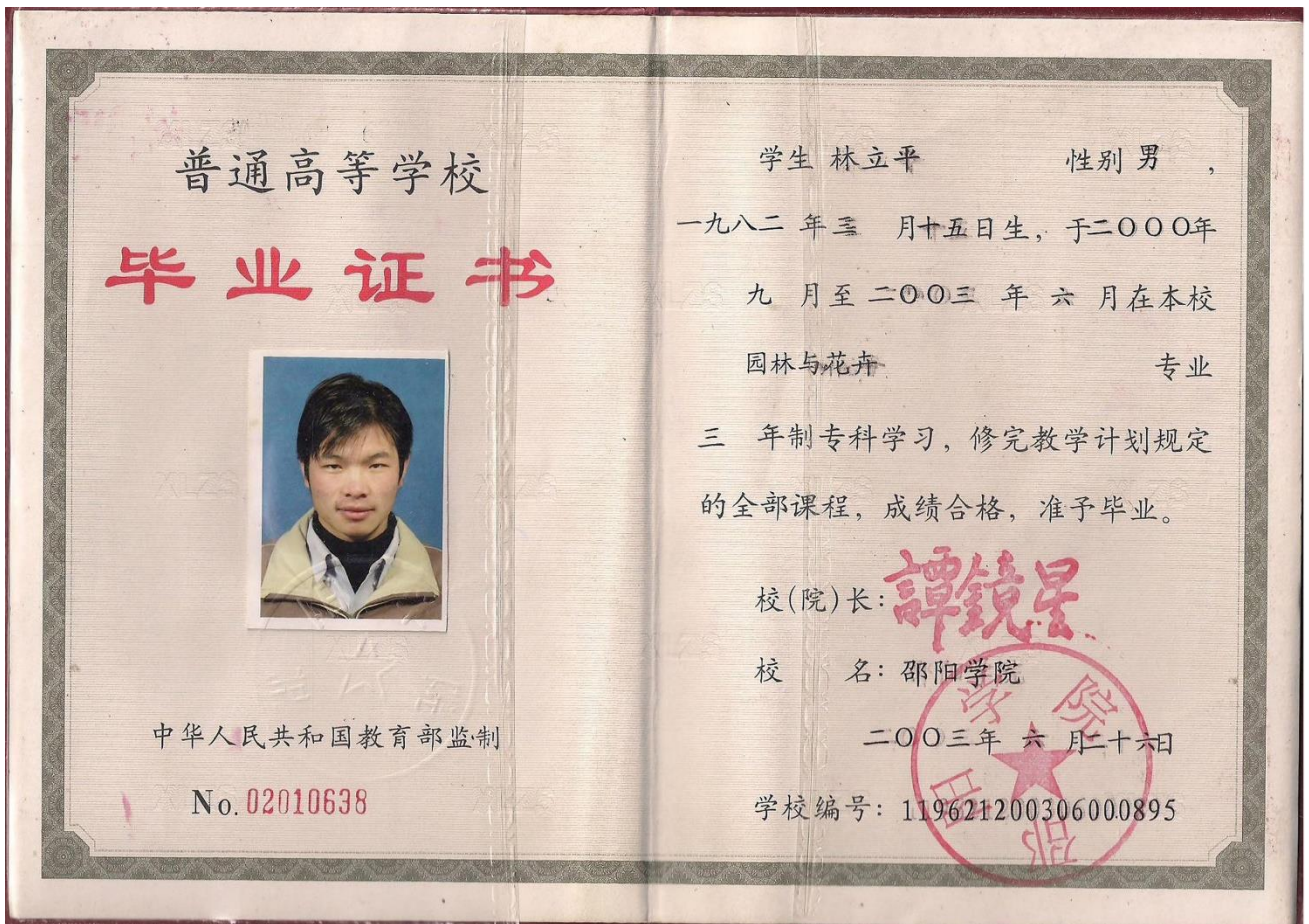 普通高等学校
毕业证书
中华人民共和国教育部监制
No. 02010638
学生 林立平 性别 男 ,
一九八二 年 三 月十五日生, 于二〇〇〇年
九 月至 二〇〇三 年 六 月在本校
园林与花卉 专业
三 年制专科学习, 修完教学计划规定
的全部课程, 成绩合格, 准予毕业。
校(院)长: 譚鏡星
校 名: 邵阳学院
二〇〇三年 六 月二十六日
学校编号: 119621200306000895
邵阳学院